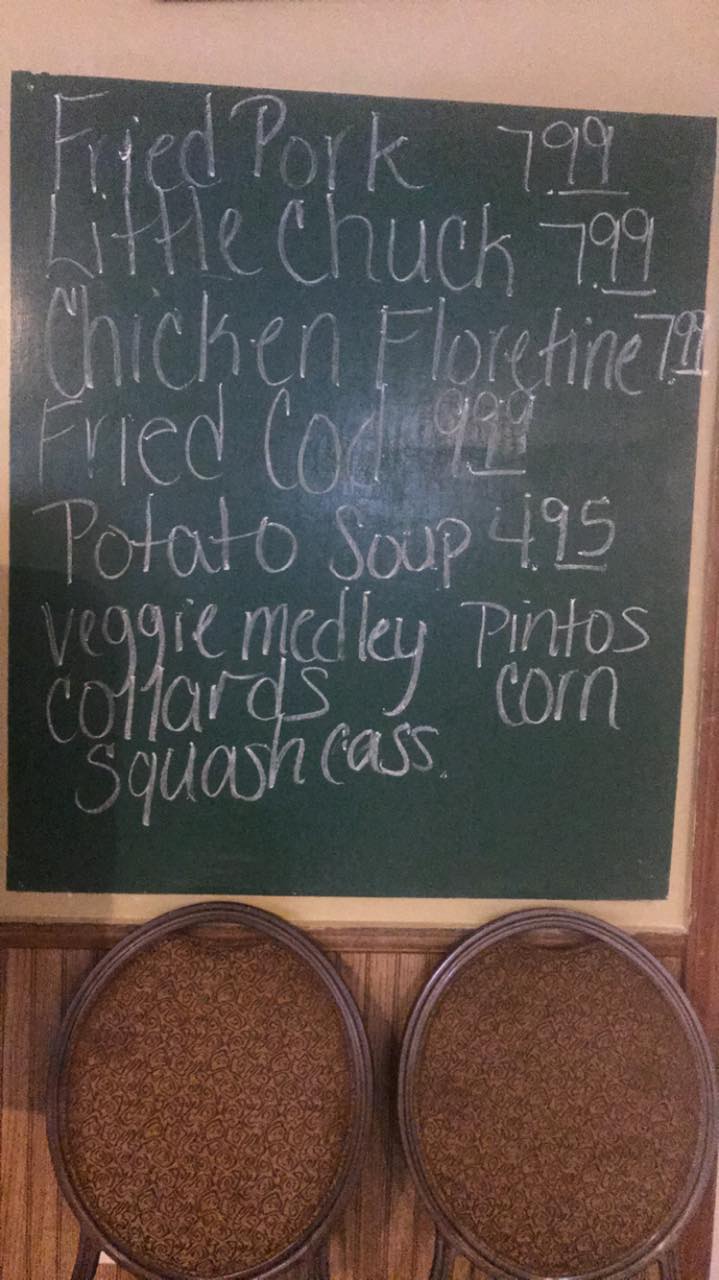 Fried Pork 7.99
Little Chuck 7.99
Chicken Floretine 7.99
Fried Cod 9.99
Potato Soup 4.95
veggie medley Pintos
collards corn
squash cass.